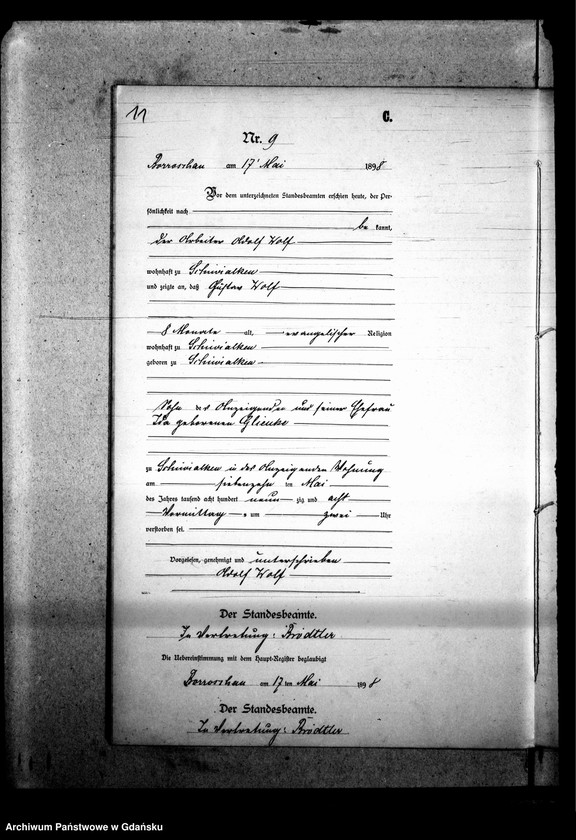 11
C.
Nr. 9
Borroschau am 17' Mai 1898
Vor dem unterzeichneten Standesbeamten erschien heute, der Per-
sönlichkeit nach
be kannt,
der Arbeiter Adolf Wolf
wohnhaft zu Schiwialken
und zeigte an, daß Gustav Wolf
8 Monate alt, evangelischer Religion
wohnhaft zu Schiwialken
geboren zu Schiwialken
Sohn des Anzeigenden und seiner Ehefrau
Ida geborenen Glienke
zu Schiwialken in des Anzeigenden Wohnung
am siebenzehn ten Mai
des Jahres tausend acht hundert neun zig und acht
Vormittag s um zwei Uhr
verstorben sei.
Vorgelesen, genehmigt und unterschrieben
Adolf Wolf
Der Standesbeamte.
In Vertretung: Brödtler
Die Uebereinstimmung mit dem Haupt-Register beglaubigt
Borroschau am 17 ten Mai 1898
Der Standesbeamte.
In Vertretung: Brödtler
Archiwum Państwowe w Gdańsku